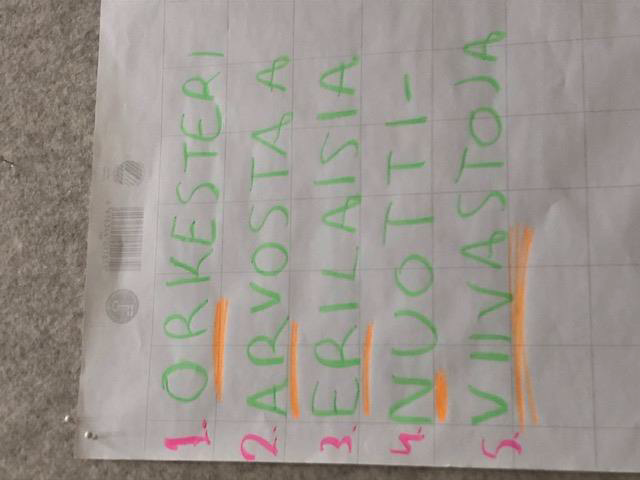 1. ORKESTERI
2. ARVOSTAA
3. ERILAISIA
4. NUOTTI-
5. VIIVASTOJA